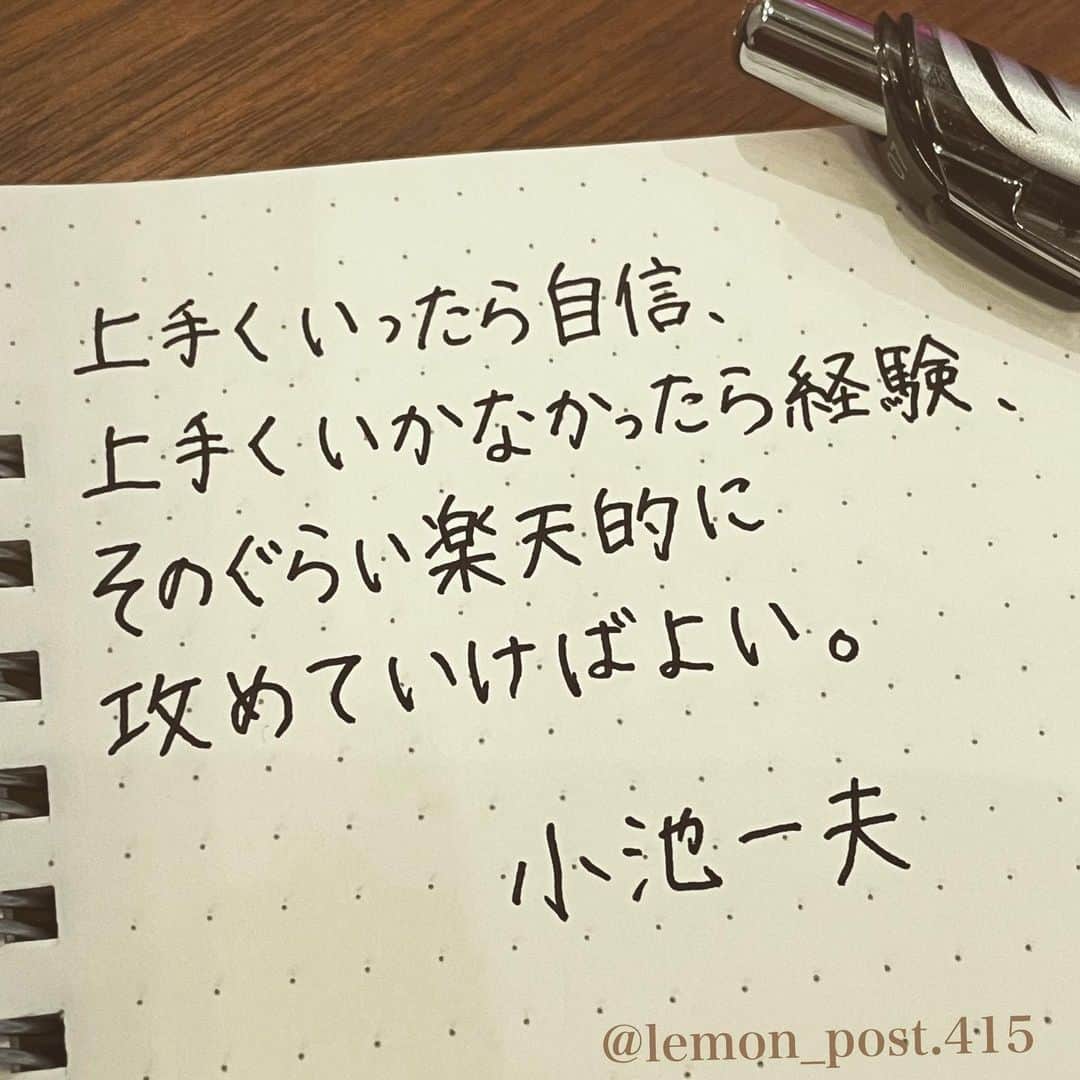 上手くいったら自信、
上手くいかなかったら経験、
そのぐらい楽天的に
攻めていけばよい。
小池一夫
@lemon_post.415